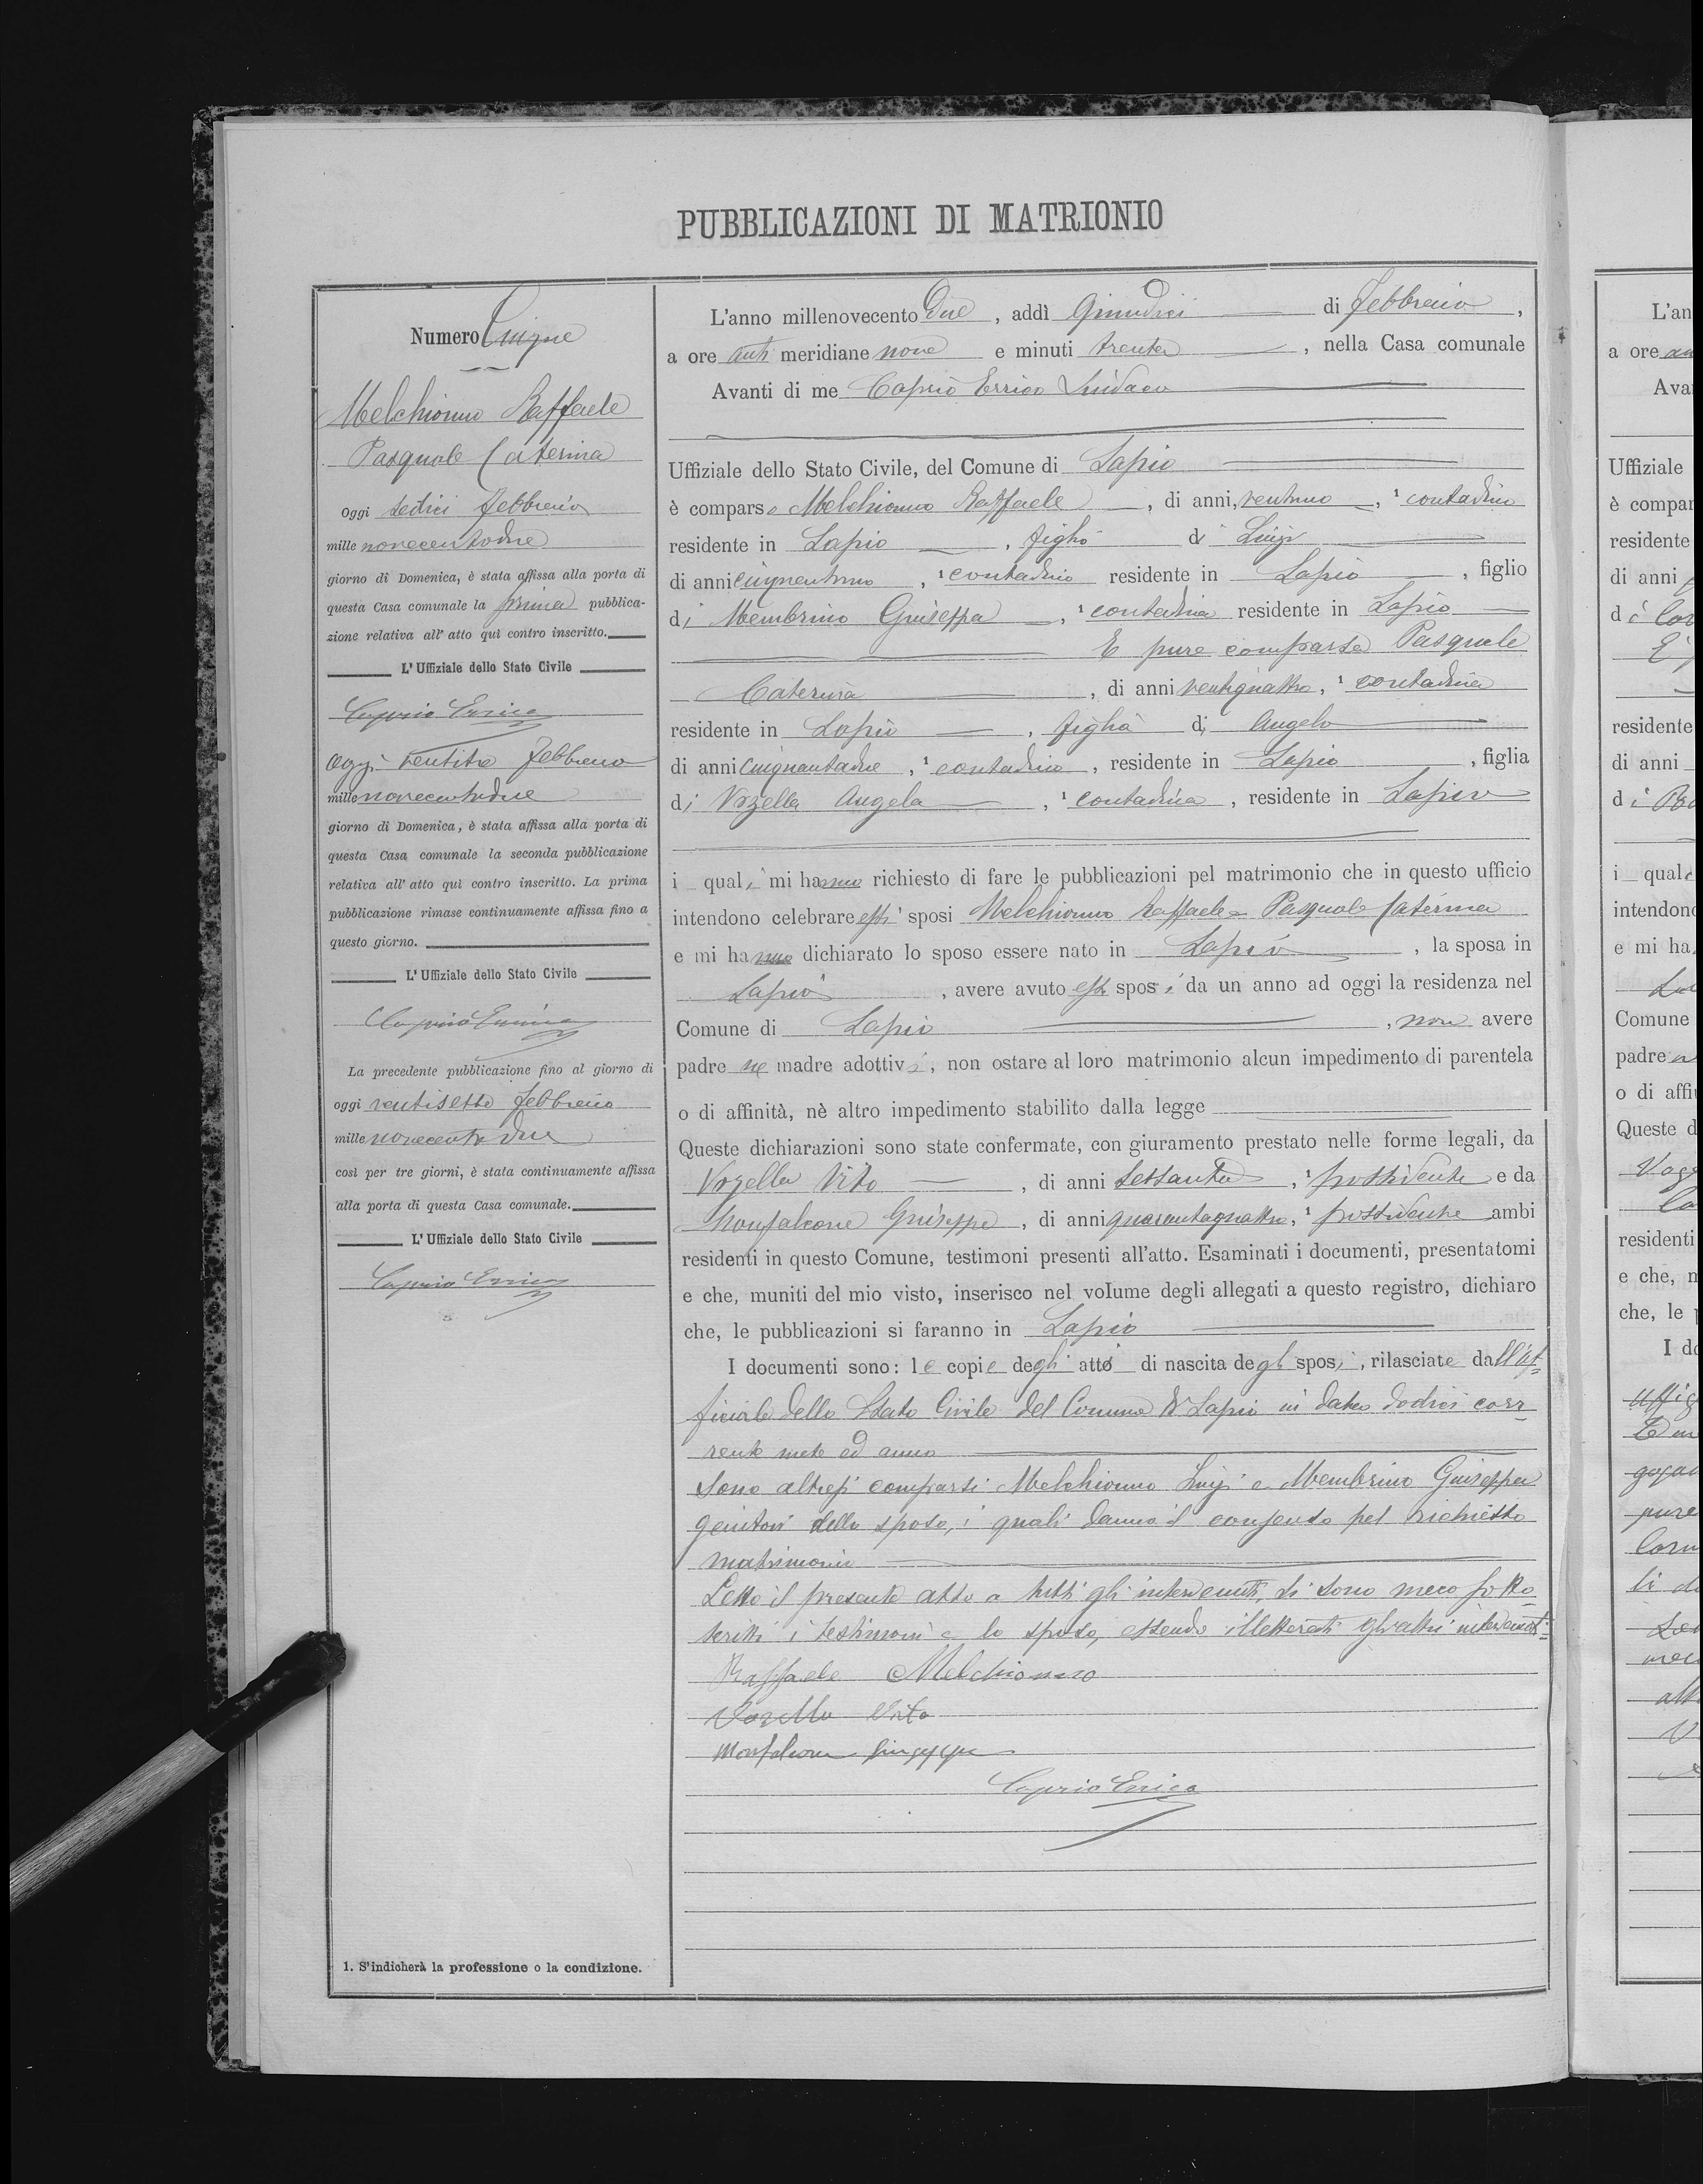 PUBBLICAZIONI DI MATRIONIO
Numero Cinque
Melchionno Raffaele
Pasquale Caterina
oggi sedici Febbraio
mille novecentodue
giorno di Domenica, è stata affissa alla porta di
questa Casa comunale la prima pubblica-
zione relativa all' atto quì contro inscritto.
L' Uffiziale dello Stato Civile
Caprio Errico
Oggi ventitre Febbraio
mille novecentodue
giorno di Domenica, è stata affissa alla porta di
questa Casa comunale la seconda pubblicazione
relativa all' atto quì contro inscritto. La prima
pubblicazione rimase continuamente affissa fino a
questo giorno.
L' Uffiziale dello Stato Civile
Caprio Errico
La precedente pubblicazione fino al giorno di
oggi ventisette Febbraio
mille novecento due
così per tre giorni, è stata continuamente affissa
alla porta di questa Casa comunale.
L' Uffiziale dello Stato Civile
Caprio Errico
1. S'indicherà la professione o la condizione.
L'anno millenovecento Due, addì Quindici di Febbraio,
a ore anti meridiane nove e minuti trenta, nella Casa comunale
Avanti di me Caprio Errico Sindaco
Uffiziale dello Stato Civile, del Comune di Lapio
è comparso Melchionno Raffaele, di anni, ventuno, ¹ contadino
residente in Lapio, figlio di Luigi
di anni cinquantuno, ¹ contadino residente in Lapio, figlio
di Membrino Giuseppa, ¹ contadina residente in Lapio
E pure comparsa Pasquale
Caterina, di anni ventiquattro, ¹ contadina
residente in Lapio, figlia di Angelo
di anni cinquantadue, ¹ contadino, residente in Lapio, figlia
di Vozella Angela, ¹ contadina, residente in Lapio
i quali mi hanno richiesto di fare le pubblicazioni pel matrimonio che in questo ufficio
intendono celebrare essi sposi Melchionno Raffaele e Pasquale Caterina
e mi hanno dichiarato lo sposo essere nato in Lapio, la sposa in
Lapio, avere avuto essi sposi da un anno ad oggi la residenza nel
Comune di Lapio, non avere
padre ne madre adottivi, non ostare al loro matrimonio alcun impedimento di parentela
o di affinità, nè altro impedimento stabilito dalla legge
Queste dichiarazioni sono state confermate, con giuramento prestato nelle forme legali, da
Vozella Vito, di anni sessanta, ¹ possidente e da
Monfalcone Giuseppe, di anni quarantaquattro, ¹ possidente ambi
residenti in questo Comune, testimoni presenti all'atto. Esaminati i documenti, presentatomi
e che, muniti del mio visto, inserisco nel volume degli allegati a questo registro, dichiaro
che, le pubblicazioni si faranno in Lapio
I documenti sono: le copie degli atti di nascita degli sposi, rilasciate dall'uf-
ficiale dello Stato Civile del Comune di Lapio in data dodici cor-
rente mese ed anno
Sono altresì comparsi Melchionno Luigi e Membrino Giuseppa
genitori dello sposo, i quali danno il consenso pel richiesto
matrimonio
Letto il presente atto a tutti gli intervenuti, si sono meco sotto-
scritti i testimoni e lo sposo, essendo illetterati gli altri intervenuti
Raffaele Melchionno
Vozella Vito
Monfalcone Giuseppe
Caprio Errico
L'an
a ore an
Ava
Uffiziale
è compar
residente
di anni
di
residente
di anni
di
i quali
intendono
e mi ha
Comune
padre
o di affi
Queste d
residenti
e che, m
che, le
I do